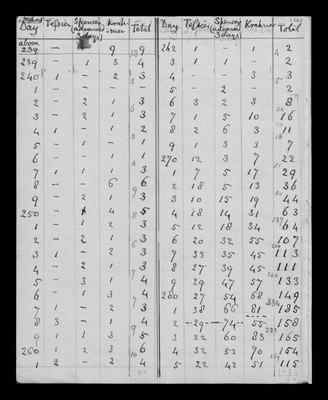 Day Tefsier Spencer (advanced 3 days) Krakower Total
above
239 – 9 9
239 – 1 3 4
240 1 – 2 3
1 – – – –
2 – 2 1 3
3 – 2 1 3
4 1 – 1 2
5 – 1 – 1
6 – – 1 1
7 1 1 1 3
8 – – 6 6
9 – 2 1 3
250 – 4 5
1 – 1 2 3
2 – 2 1 3
3 1 – 2 3
4 – 2 1 3
5 – 3 1 4
6 – 1 3 4
7 1 – 2 3
8 3 – 1 4
9 1 1 3 5
260 1 2 3 6
1 2 – 2 4
Day Tefsier Spencer (advanced 3 days) Krakower Total
262 – 1 1 2
3 1 1 – 2
4 – – 3 3
5 – 2 – 2
6 3 2 3 8
7 1 5 10 16
8 2 6 3 11
9 1 3 3 7
270 12 3 7 22
1 7 5 17 29
2 18 5 13 36
3 10 15 19 44
4 18 14 31 63
5 12 18 34 64
6 20 32 55 107
7 33 35 45 113
8 27 39 45 111
9 29 47 57 133
280 27 54 68 149
1 38 66 81 185
2 29 74 55 158
3 22 60 83 165
4 32 52 70 154
5 22 42 51 115